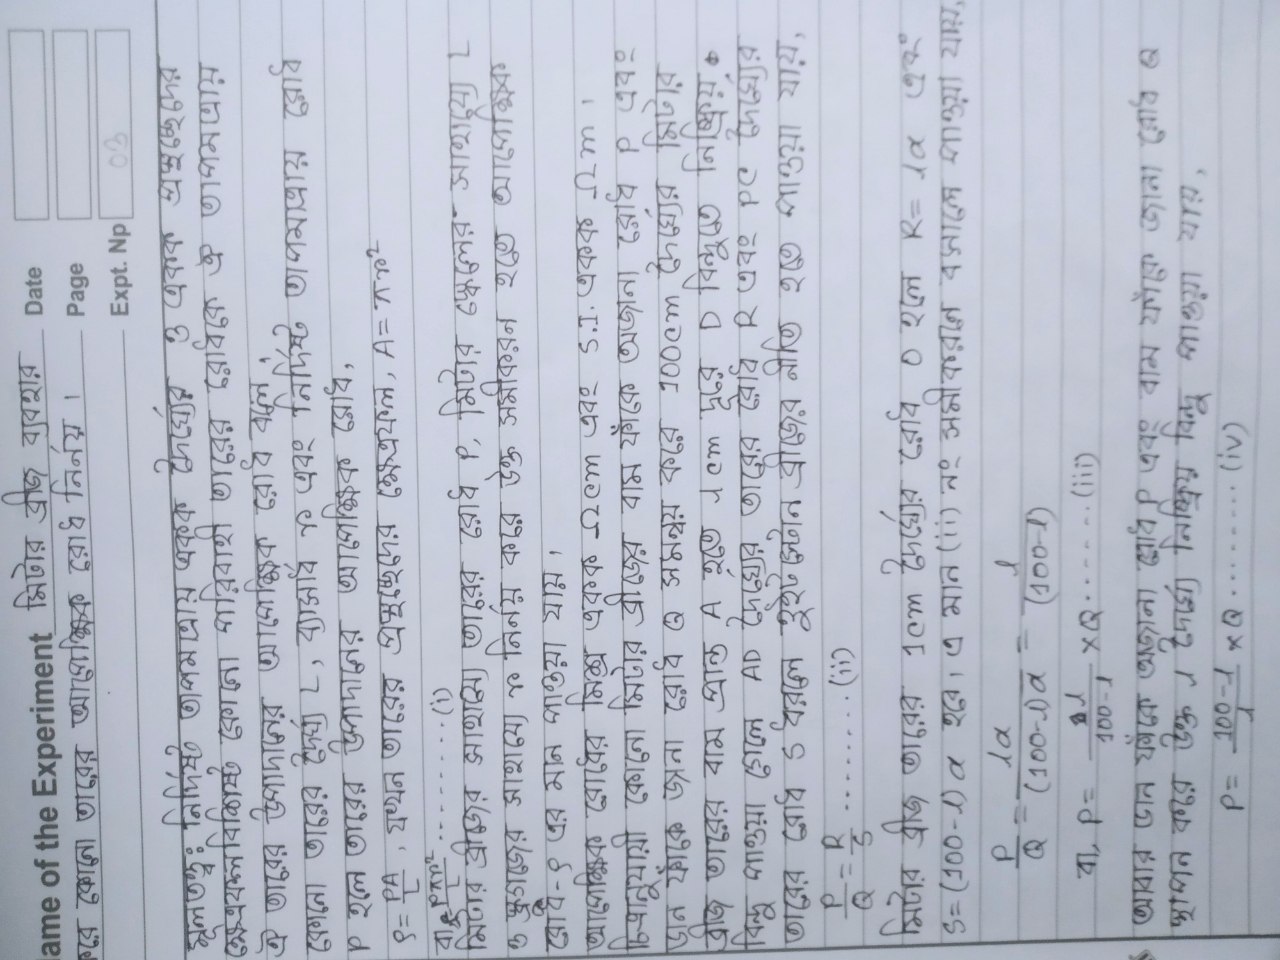 Name of the Experiment মিটার ব্রীজ ব্যবহার
করে কোনো তারের আপেক্ষিক রোধ নির্নয়।
Date
Page
Expt. Np 03
মূলতত্ত্ব: নির্দিষ্ট তাপমাত্রায় একক দৈর্ঘ্যের ও একক প্রস্থচ্ছেদের
ক্ষেত্রফলবিশিষ্ট কোনো পরিবাহী তারের রোধকে ঐ তাপমাত্রায়
ঐ তারের উপাদানের আপেক্ষিক রোধ বলে।
কোনো তারের দৈর্ঘ্য L, ব্যাসার্ধ r এবং নির্দিষ্ট তাপমাত্রায় রোধ
P হলে তারের উপাদানের আপেক্ষিক রোধ,
ρ = PA/L, যখন তারের প্রস্থচ্ছেদের ক্ষেত্রফল, A = πr²
বা, ρ = Pπr²/L ........(i)
মিটার ব্রীজের সাহায্যে তারের রোধ P, মিটার স্কেলের সাহায্যে L
ও স্ক্রুগজের সাহায্যে r নির্ণয় করে উক্ত সমীকরন হতে আপেক্ষিক
রোধ - ρ এর মান পাওয়া যায়।
আপেক্ষিক রোধের মিশ্র একক Ωcm এবং S.I. একক Ωm।
চিত্রানুযায়ী কোনো মিটার ব্রীজের বাম ফাঁকে অজানা রোধ P এবং
ডান ফাঁকে জানা রোধ Q সমন্বয় করে 100cm দৈর্ঘ্যের মিটার
ব্রীজ তারের বাম প্রান্ত A হতে l cm দূরে D বিন্দুতে নিষ্ক্রিয়
বিন্দু পাওয়া গেলে AD দৈর্ঘ্যের তারের রোধ R এবং DC দৈর্ঘ্যের
তারের রোধ S ধরলে হুইটস্টোন ব্রীজের নীতি হতে পাওয়া যায়,
P/Q = R/S ........(ii)
মিটার ব্রীজ তারের 1cm দৈর্ঘ্যের রোধ σ হলে R = lα এবং
S = (100-l)α হবে। এ মান (ii) নং সমীকরনে বসালে পাওয়া যায়,
P/Q = lα/(100-l)α = l/(100-l)
বা, P = l/100-l × Q ......(iii)
আবার ডান ফাঁকে অজানা রোধ P এবং বাম ফাঁকে জানা রোধ Q
স্থাপন করে উক্ত l দৈর্ঘ্যে নিষ্ক্রিয় বিন্দু পাওয়া যায়,
P = 100-l/l × Q ........(iv)